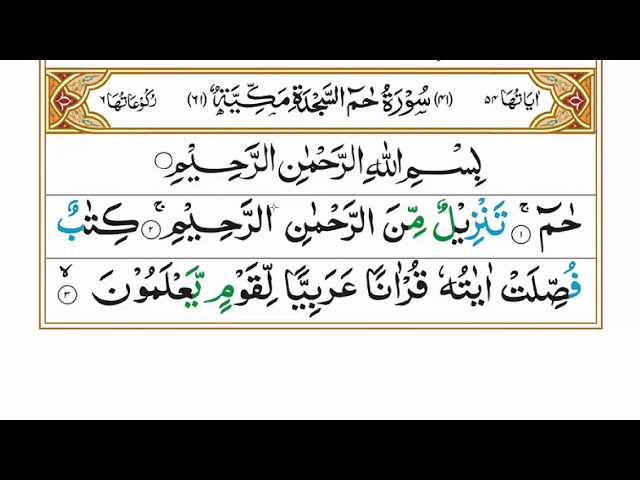 اٰیَاتُهَا ۵۴ (۴۱) سُوْرَةُ حٰمٓ السَّجْدَةِ مَكِّیَّةٌ (۶۱) رُكُوْعَاتُهَا ۶
بِسْمِ اللّٰهِ الرَّحْمٰنِ الرَّحِیْمِ
حٰمٓ ۚ‏ ۱ تَنْزِیْلٌ مِّنَ الرَّحْمٰنِ الرَّحِیْمِ ۚ‏ ۲ كِتٰبٌ
فُصِّلَتْ اٰیٰتُهٗ قُرْاٰنًا عَرَبِیًّا لِّقَوْمٍ یَّعْلَمُوْنَ ۙ‏ ۳